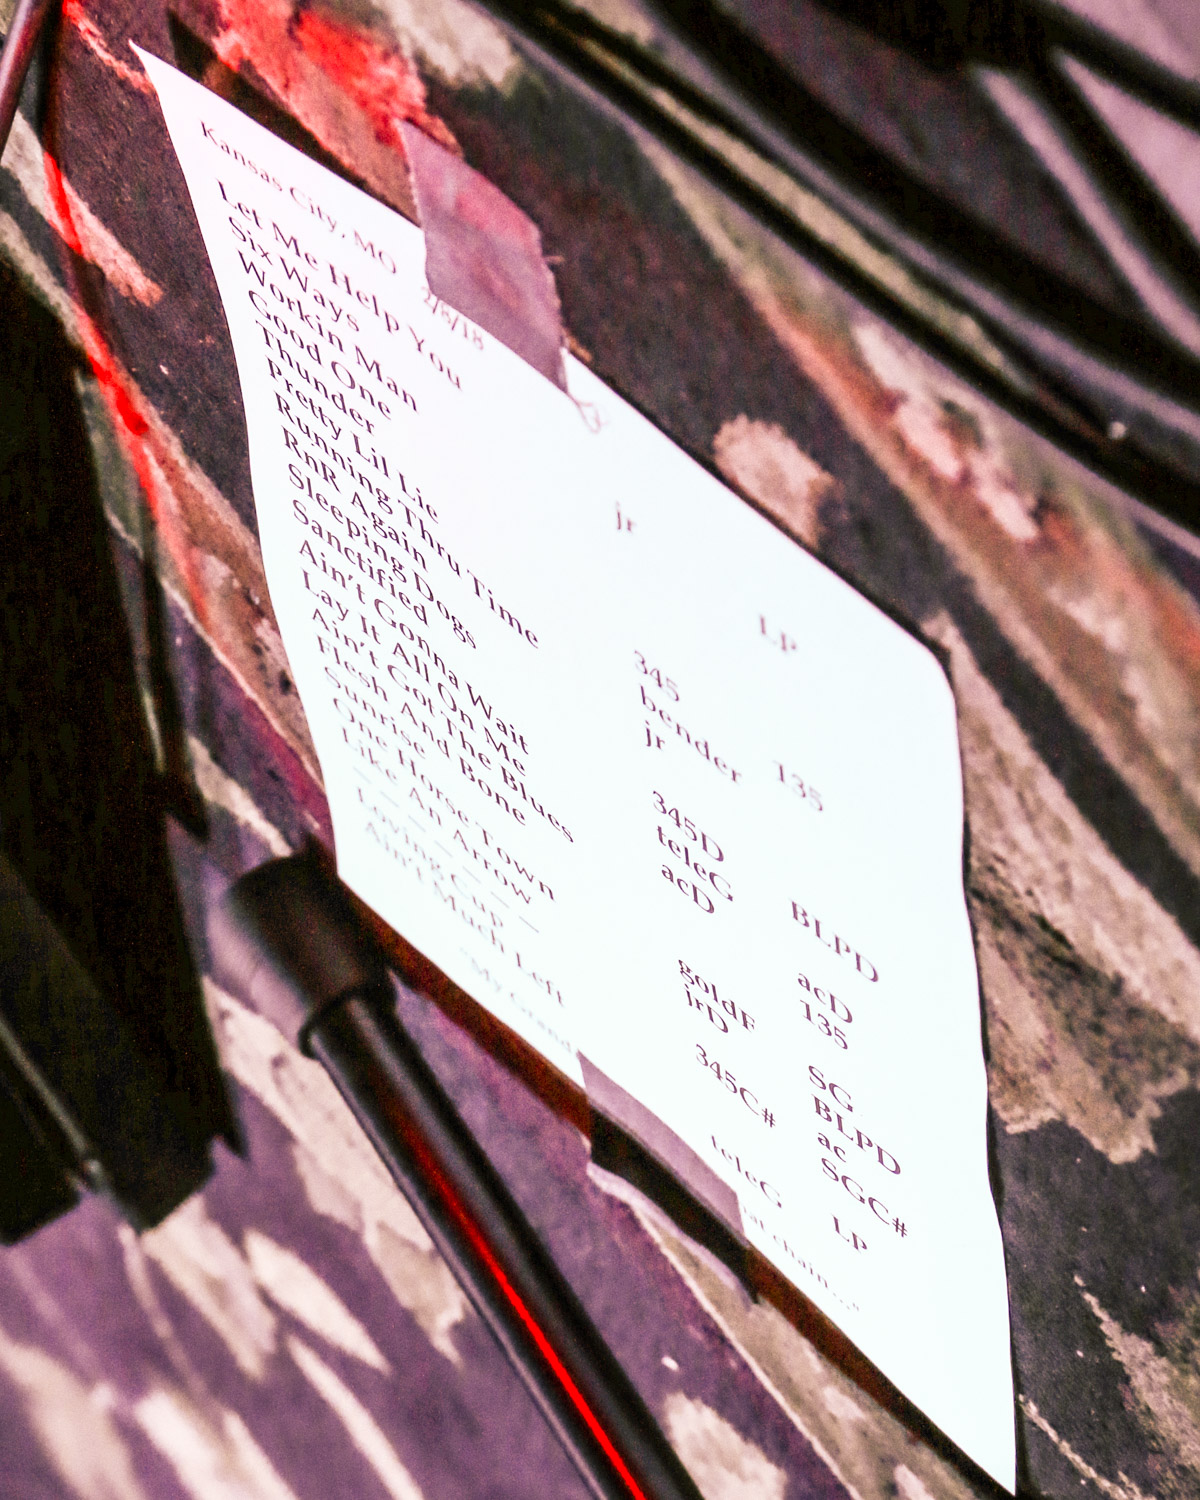 Kansas City, MO 2/8/18
Let Me Help You jr LP
Six Ways
Workin Man
Good One
Thunder 345 135
Pretty Lil Lie bender
Running Thru Time jr
RnR Again
Sleeping Dogs 345D BLPD
Sanctified teleG
Ain't Gonna Wait acD acD
Lay It All On Me 135
Ain't Got The Blues
Flesh And Bone goldF SG
Sunrise jrD BLPD
One Horse Town ac
Like An Arrow 345C# SGC#
— — — — — —
Loving Cup LP
Ain't Much Left teleG
"My Grand chain..."